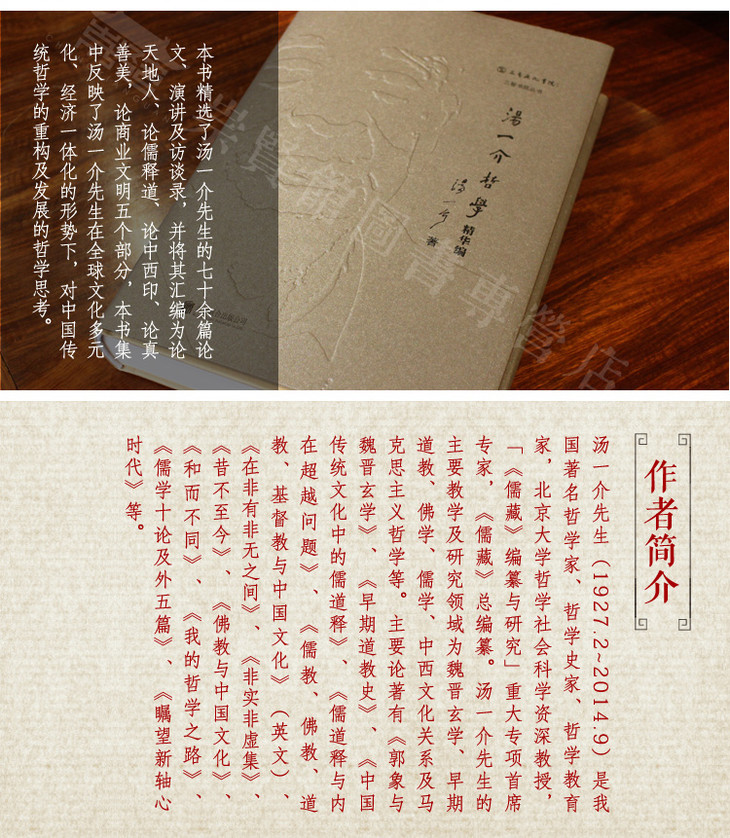 本书精选了汤一介先生的七十余篇论
文、演讲及访谈录，并将其汇编为论
天地人、论儒释道、论中西印、论真
善美，论商业文明五个部分，本书集
中反映了汤一介先生在全球文化多元
化、经济一体化的形势下，对中国传
统哲学的重构及发展的哲学思考。
湯一介哲學
精华编
湯一介
著
崇賢館圖書專營店
作者简介
汤一介先生（1927.2~2014.9）是我
国著名哲学家、哲学史家、哲学教育
家，北京大学哲学社会科学资深教授，
「《儒藏》编纂与研究」重大专项首席
专家，《儒藏》总编纂。汤一介先生的
主要教学及研究领域为魏晋玄学、早期
道教、佛学、儒学、中西文化关系及马
克思主义哲学等。主要论著有《郭象与
魏晋玄学》、《早期道教史》、《中国
传统文化中的儒道释》、《儒道释与内
在超越问题》、《儒教、佛教、道
教、基督教与中国文化》（英文）、
《在非有非无之间》、《非实非虚集》、
《昔不至今》、《佛教与中国文化》、
《和而不同》、《我的哲学之路》、
《儒学十论及外五篇》、《瞩望新轴心
时代》等。